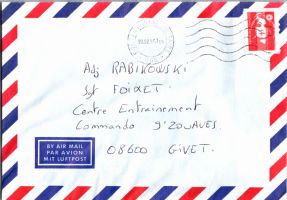 Adj RABIKOWSKI
Sgt FOIXET.
Centre Entrainement
Commando 9'ZOUAVES.
08600 GIVET.
BY AIR MAIL
PAR AVION
MIT LUFTPOST